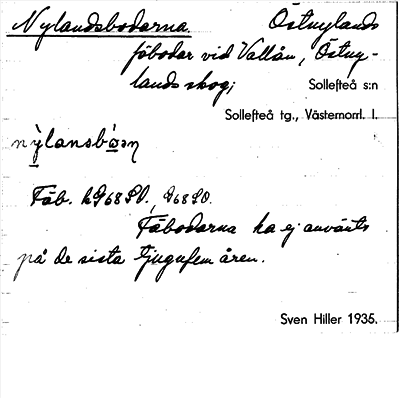 Nylandsbodarna. Östnylands
fäbodar vid Vallån, Östny-
lands skog; Sollefteå s:n
Sollefteå tg., Västernorrl. l.
Fäb.
Fäbodarna ha ej använts
på de sista tjugufem åren.
Sven Hiller 1935.